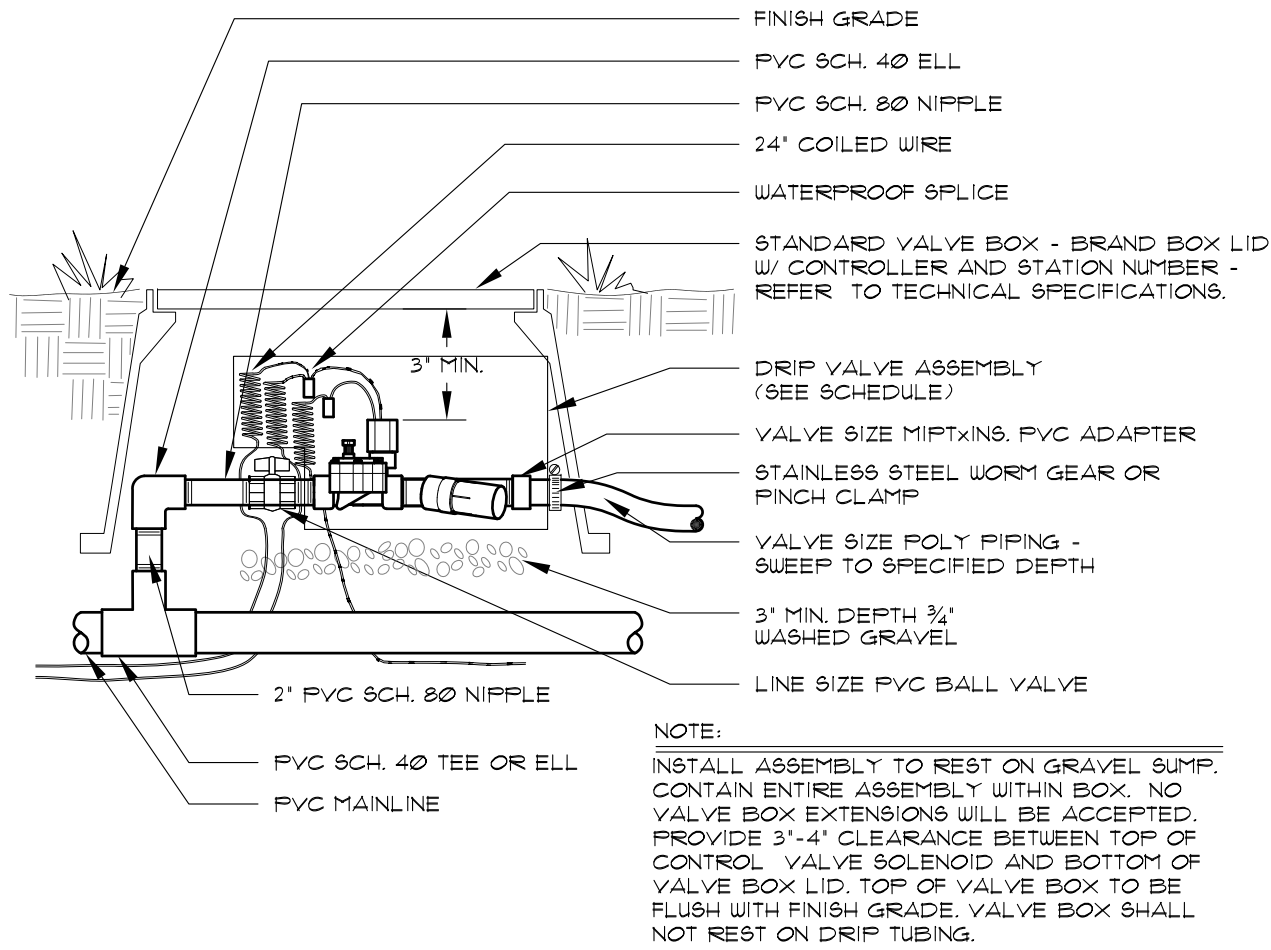 FINISH GRADE
PVC SCH. 40 ELL
PVC SCH. 80 NIPPLE
24" COILED WIRE
WATERPROOF SPLICE
STANDARD VALVE BOX - BRAND BOX LID
W/ CONTROLLER AND STATION NUMBER -
REFER TO TECHNICAL SPECIFICATIONS.
3" MIN.
DRIP VALVE ASSEMBLY
(SEE SCHEDULE)
VALVE SIZE MIPTxINS. PVC ADAPTER
STAINLESS STEEL WORM GEAR OR
PINCH CLAMP
VALVE SIZE POLY PIPING -
SWEEP TO SPECIFIED DEPTH
3" MIN. DEPTH ¾"
WASHED GRAVEL
LINE SIZE PVC BALL VALVE
2" PVC SCH. 80 NIPPLE
PVC SCH. 40 TEE OR ELL
PVC MAINLINE
NOTE:
INSTALL ASSEMBLY TO REST ON GRAVEL SUMP.
CONTAIN ENTIRE ASSEMBLY WITHIN BOX. NO
VALVE BOX EXTENSIONS WILL BE ACCEPTED.
PROVIDE 3"-4" CLEARANCE BETWEEN TOP OF
CONTROL VALVE SOLENOID AND BOTTOM OF
VALVE BOX LID. TOP OF VALVE BOX TO BE
FLUSH WITH FINISH GRADE. VALVE BOX SHALL
NOT REST ON DRIP TUBING.